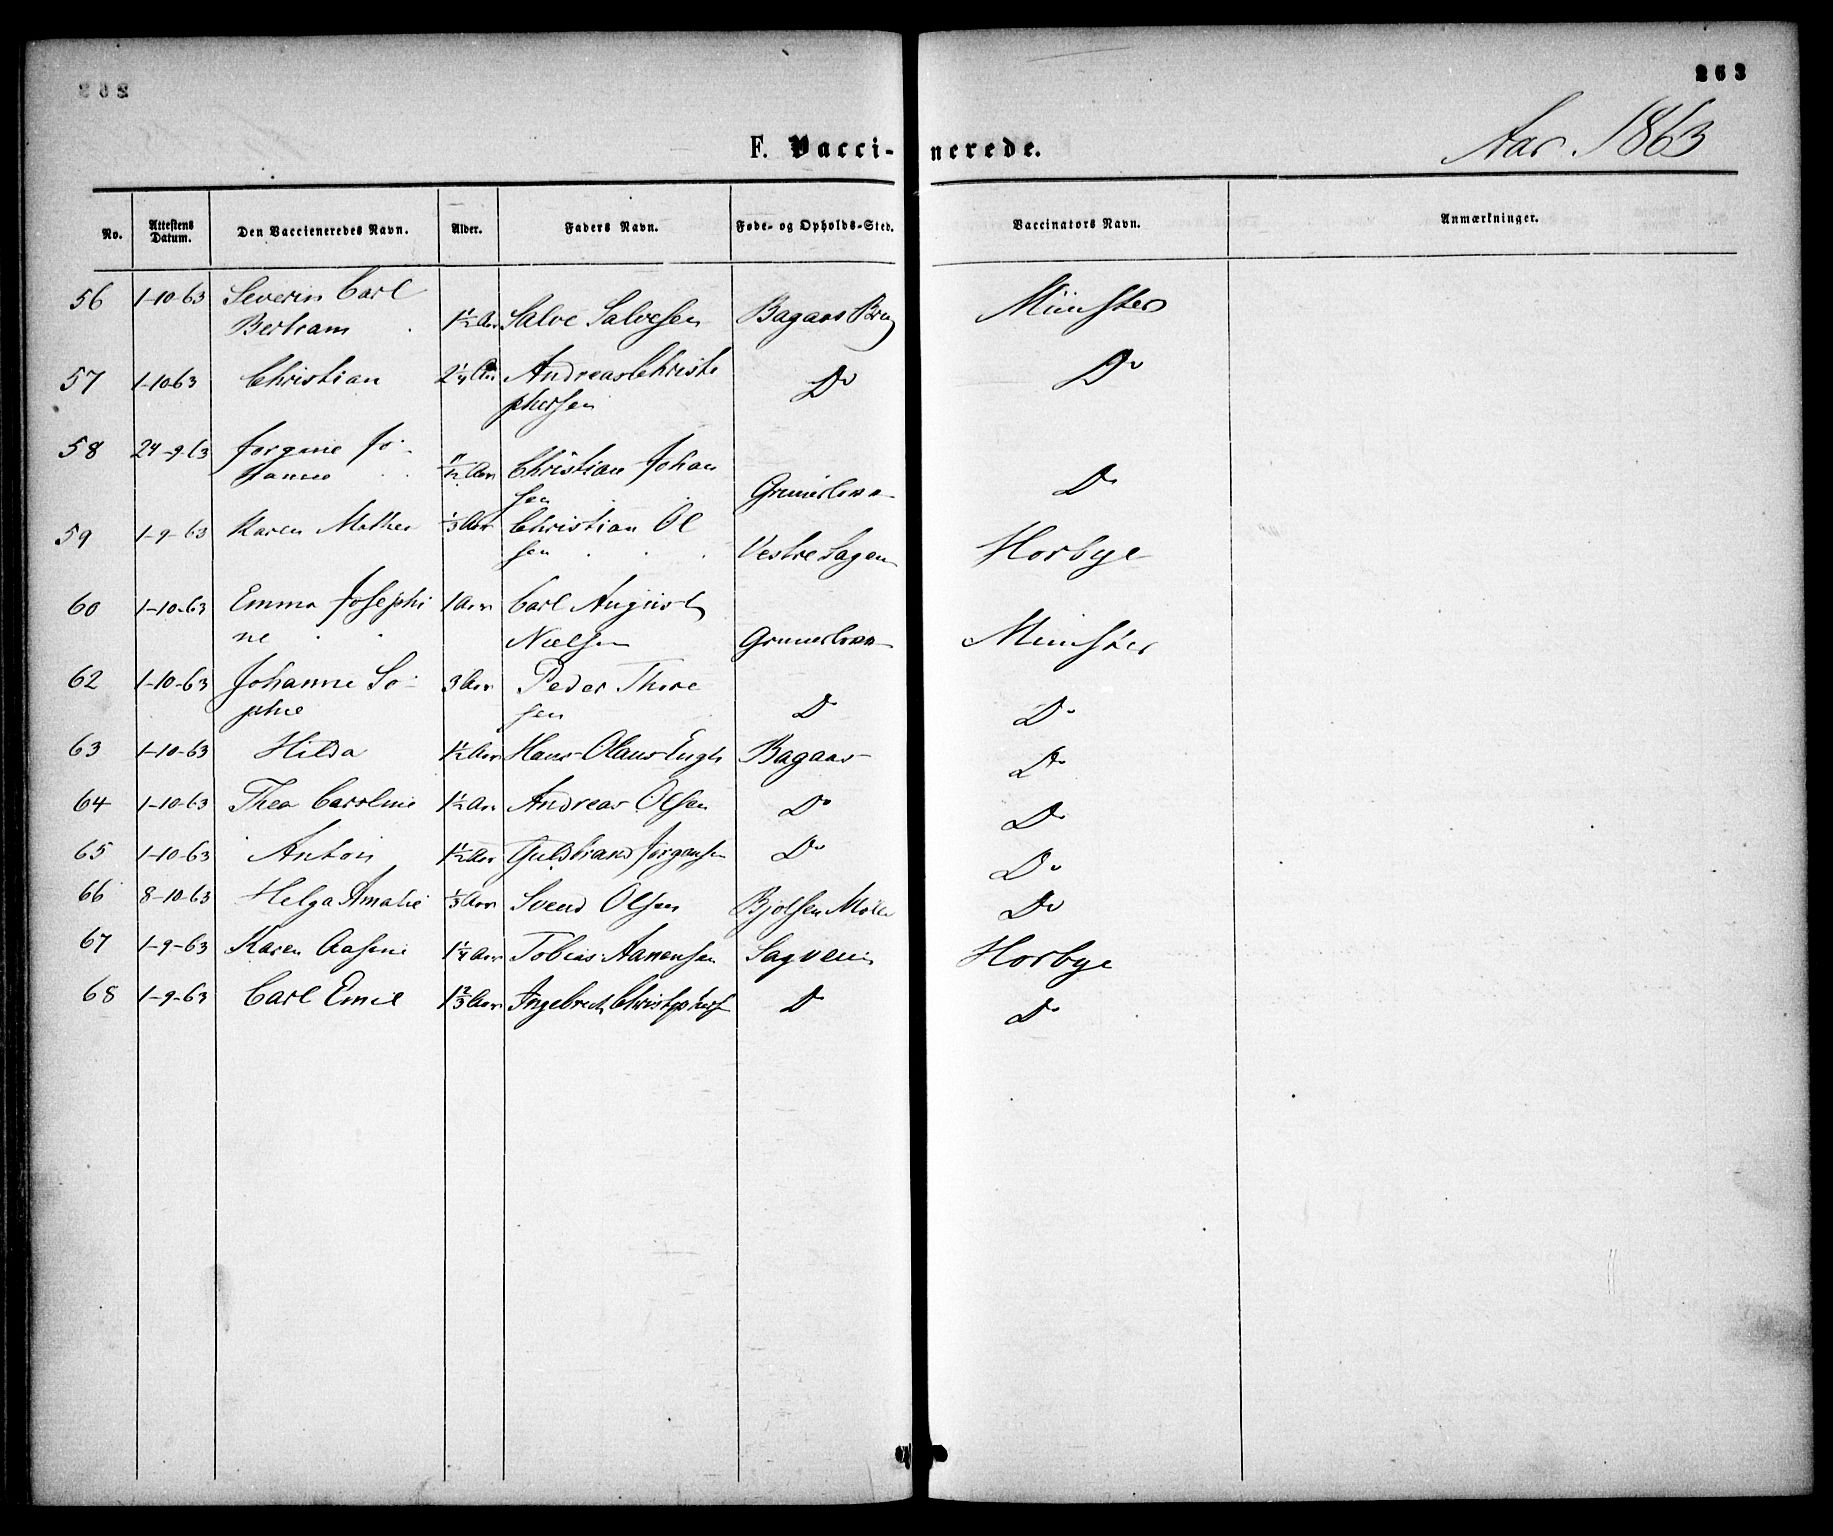 263
F. Vaccinerede.
Aar 1863
No. Attestens Datum. Den Vaccieneredes Navn. Alder. Faders Navn. Føde- og Opholds-Sted. Vaccinators Navn. Anmærkninger.
56 1-10-63 Severin Carl
Bertram 1½ Aar Salve Salvesen Bagaas Brug Münster
57 1-10-63 Christian 2¼ Aar Andreas Christo
phersen Do Do
58 24-9-63 Jorgine Jo-
hanne 11/12 Aar Christian Johan
sen Grünerløkken Do
59 1-9-63 Karen Mathea ⅓ Aar Christian Ol
sen Vestre Sagen Horbye
60 1-10-63 Emma Josephi
ne 1 Aar Carl August
Nielsen Grünerløkken Münster
62 1-10-63 Johanne So-
phie 3 Aar Peder Thore
sen Do Do
63 1-10-63 Hilda 1½ Aar Hans Olaus Engh Bagaas Do
64 1-10-63 Thea Caroline 1½ Aar Andreas Olsen Do Do
65 1-10-63 Anton 1½ Aar Guldbrand Jørgensen Do Do
66 8-10-63 Helga Amalie ⅓ Aar Svend Olsen Bjølsen Mølle Do
67 1-9-63 Karen Aasine 1¼ Aar Tobias Aanensen Sagveien Horbye
68 1-9-63 Carl Emil 1⅔ Aar Ingebret Christophers Do Do